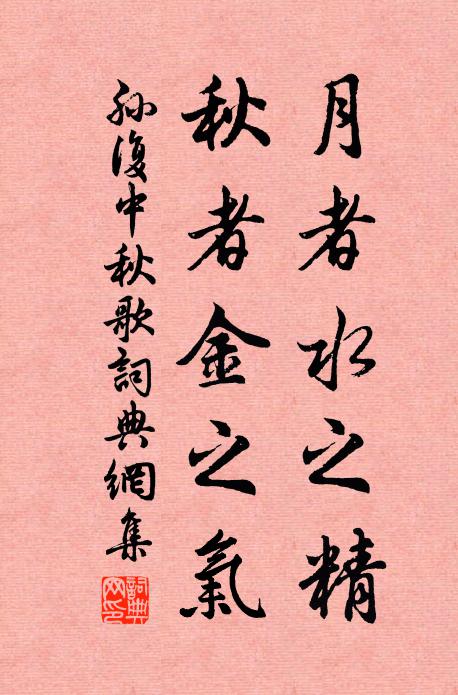 月者水之精
秋者金之氣
孙復中秋歌詞典網集
詞典网印